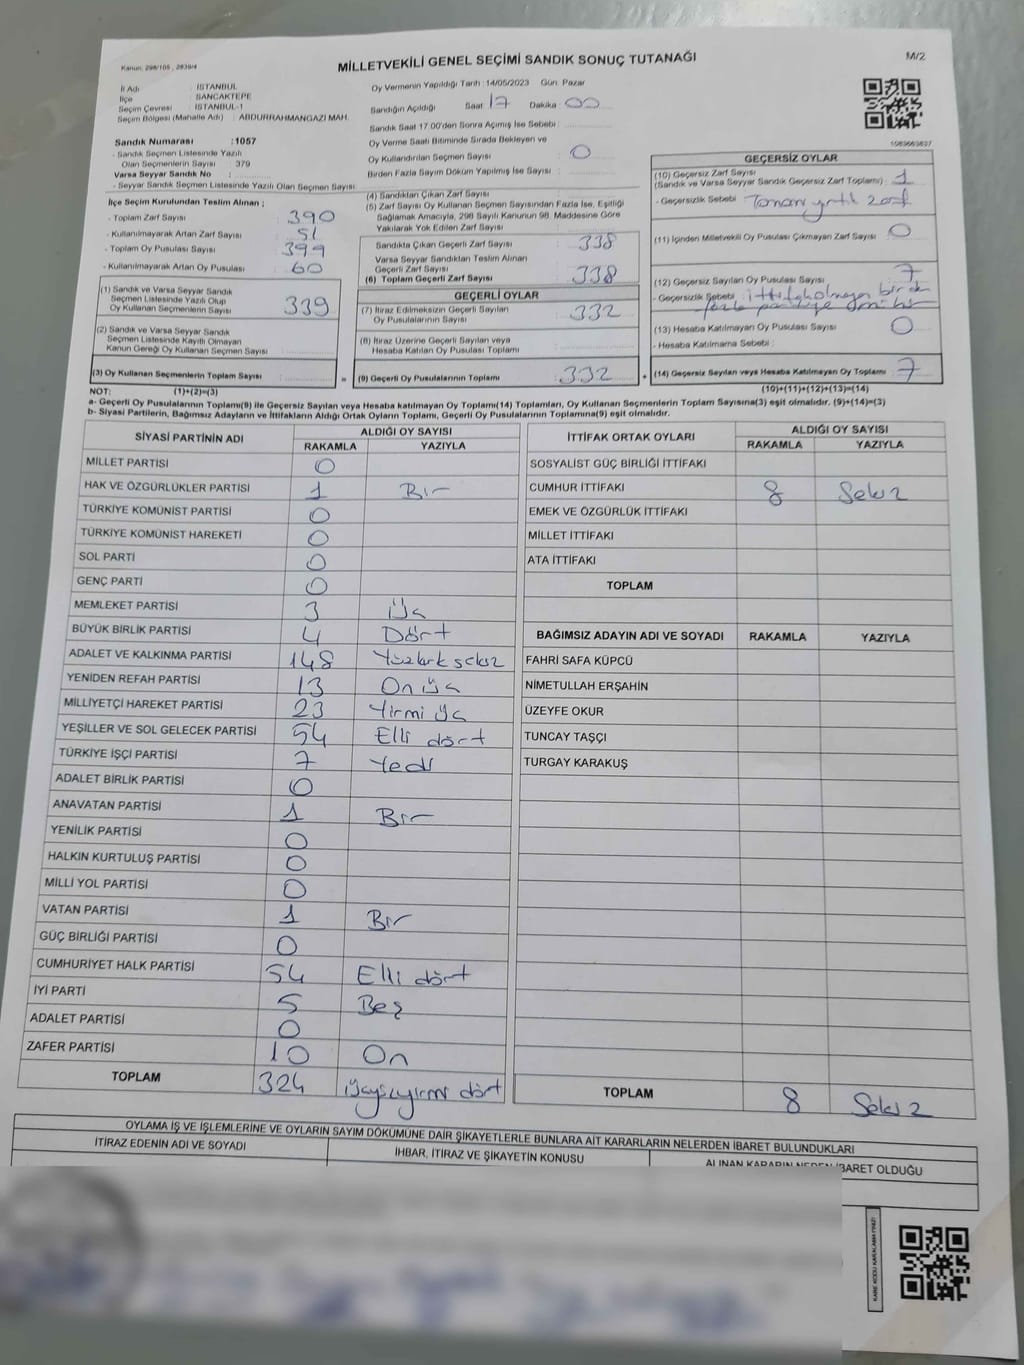 Kanun: 298/105 , 2839/4
MİLLETVEKİLİ GENEL SEÇİMİ SANDIK SONUÇ TUTANAĞI
M/2
İl Adı : İSTANBUL
İlçe : SANCAKTEPE
Seçim Çevresi : İSTANBUL-1
Seçim Bölgesi (Mahalle Adı) : ABDURRAHMANGAZİ MAH.
Sandık Numarası :1057
- Sandık Seçmen Listesinde Yazılı
Olan Seçmenlerin Sayısı : 379
Varsa Seyyar Sandık No :
- Seyyar Sandık Seçmen Listesinde Yazılı Olan Seçmen Sayısı:
Oy Vermenin Yapıldığı Tarih :14/05/2023 Gün: Pazar
Sandığın Açıldığı Saat 17 Dakika : 00
Sandık Saat 17:00'den Sonra Açılmış İse Sebebi :
Oy Verme Saati Bitiminde Sırada Bekleyen ve
Oy Kullandırılan Seçmen Sayısı : 0
Birden Fazla Sayım Döküm Yapılmış İse Sayısı :
1083663837
İlçe Seçim Kurulundan Teslim Alınan ;
- Toplam Zarf Sayısı : 390
- Kullanılmayarak Artan Zarf Sayısı : 51
- Toplam Oy Pusulası Sayısı : 399
- Kullanılmayarak Artan Oy Pusulası : 60
(1) Sandık ve Varsa Seyyar Sandık
Seçmen Listesinde Yazılı Olup
Oy Kullanan Seçmenlerin Sayısı : 339
(2) Sandık ve Varsa Seyyar Sandık
Seçmen Listesinde Kayıtlı Olmayan
Kanun Gereği Oy Kullanan Seçmen Sayısı :
(3) Oy Kullanan Seçmenlerin Toplam Sayısı :
(4) Sandıktan Çıkan Zarf Sayısı
(5) Zarf Sayısı Oy Kullanan Seçmen Sayısından Fazla İse, Eşitliği
Sağlamak Amacıyla, 298 Sayılı Kanunun 98. Maddesine Göre
Yakılarak Yok Edilen Zarf Sayısı :
Sandıkta Çıkan Geçerli Zarf Sayısı : 338
Varsa Seyyar Sandıktan Teslim Alınan
Geçerli Zarf Sayısı :
(6) Toplam Geçerli Zarf Sayısı : 338
GEÇERLİ OYLAR
(7) İtiraz Edilmeksizin Geçerli Sayılan
Oy Pusulalarının Sayısı : 332
(8) İtiraz Üzerine Geçerli Sayılan veya
Hesaba Katılan Oy Pusulası Toplamı :
= (9) Geçerli Oy Pusulalarının Toplamı : 332
GEÇERSİZ OYLAR
(10) Geçersiz Zarf Sayısı
(Sandık ve Varsa Seyyar Sandık Geçersiz Zarf Toplamı) : 1
- Geçersizlik Sebebi : Tamamı yırtık zarf
(11) İçinden Milletvekili Oy Pusulası Çıkmayan Zarf Sayısı : 0
(12) Geçersiz Sayılan Oy Pusulası Sayısı : 7
- Geçersizlik Sebebi : ittifak olmayan birden
fazla partiye
(13) Hesaba Katılmayan Oy Pusulası Sayısı : 0
- Hesaba Katılmama Sebebi :
+ (14) Geçersiz Sayılan veya Hesaba Katılmayan Oy Toplamı : 7
NOT: (1)+(2)=(3) (10)+(11)+(12)+(13)=(14)
a- Geçerli Oy Pusulalarının Toplamı(9) ile Geçersiz Sayılan veya Hesaba katılmayan Oy Toplamı(14) Toplamları, Oy Kullanan Seçmenlerin Toplam Sayısına(3) eşit olmalıdır. (9)+(14)=(3)
b- Siyasi Partilerin, Bağımsız Adayların ve İttifakların Aldığı Ortak Oyların Toplamı, Geçerli Oy Pusulalarının Toplamına(9) eşit olmalıdır.
SİYASİ PARTİNİN ADI ALDIĞI OY SAYISI
RAKAMLA YAZIYLA
MİLLET PARTİSİ 0
HAK VE ÖZGÜRLÜKLER PARTİSİ 1 Bir
TÜRKİYE KOMÜNİST PARTİSİ 0
TÜRKİYE KOMÜNİST HAREKETİ 0
SOL PARTİ 0
GENÇ PARTİ 0
MEMLEKET PARTİSİ 3 Üç
BÜYÜK BİRLİK PARTİSİ 4 Dört
ADALET VE KALKINMA PARTİSİ 148 Yüzkırksekiz
YENİDEN REFAH PARTİSİ 13 On üç
MİLLİYETÇİ HAREKET PARTİSİ 23 Yirmi üç
YEŞİLLER VE SOL GELECEK PARTİSİ 54 Elli dört
TÜRKİYE İŞÇİ PARTİSİ 7 Yedi
ADALET BİRLİK PARTİSİ 0
ANAVATAN PARTİSİ 1 Bir
YENİLİK PARTİSİ 0
HALKIN KURTULUŞ PARTİSİ 0
MİLLİ YOL PARTİSİ 0
VATAN PARTİSİ 1 Bir
GÜÇ BİRLİĞİ PARTİSİ 0
CUMHURİYET HALK PARTİSİ 54 Elli dört
İYİ PARTİ 5 Beş
ADALET PARTİSİ 0
ZAFER PARTİSİ 10 On
TOPLAM 324 Üçyüzyirmi dört
İTTİFAK ORTAK OYLARI ALDIĞI OY SAYISI
RAKAMLA YAZIYLA
SOSYALİST GÜÇ BİRLİĞİ İTTİFAKI
CUMHUR İTTİFAKI 8 Sekiz
EMEK VE ÖZGÜRLÜK İTTİFAKI
MİLLET İTTİFAKI
ATA İTTİFAKI
TOPLAM
BAĞIMSIZ ADAYIN ADI VE SOYADI RAKAMLA YAZIYLA
FAHRİ SAFA KÜPCÜ
NİMETULLAH ERŞAHİN
ÜZEYFE OKUR
TUNCAY TAŞÇI
TURGAY KARAKUŞ
TOPLAM 8 Sekiz
OYLAMA İŞ VE İŞLEMLERİNE VE OYLARIN SAYIM DÖKÜMÜNE DAİR ŞİKAYETLERLE BUNLARA AİT KARARLARIN NELERDEN İBARET BULUNDUKLARI
İTİRAZ EDENİN ADI VE SOYADI İHBAR, İTİRAZ VE ŞİKAYETİN KONUSU ALINAN KARARIN NEDEN İBARET OLDUĞU